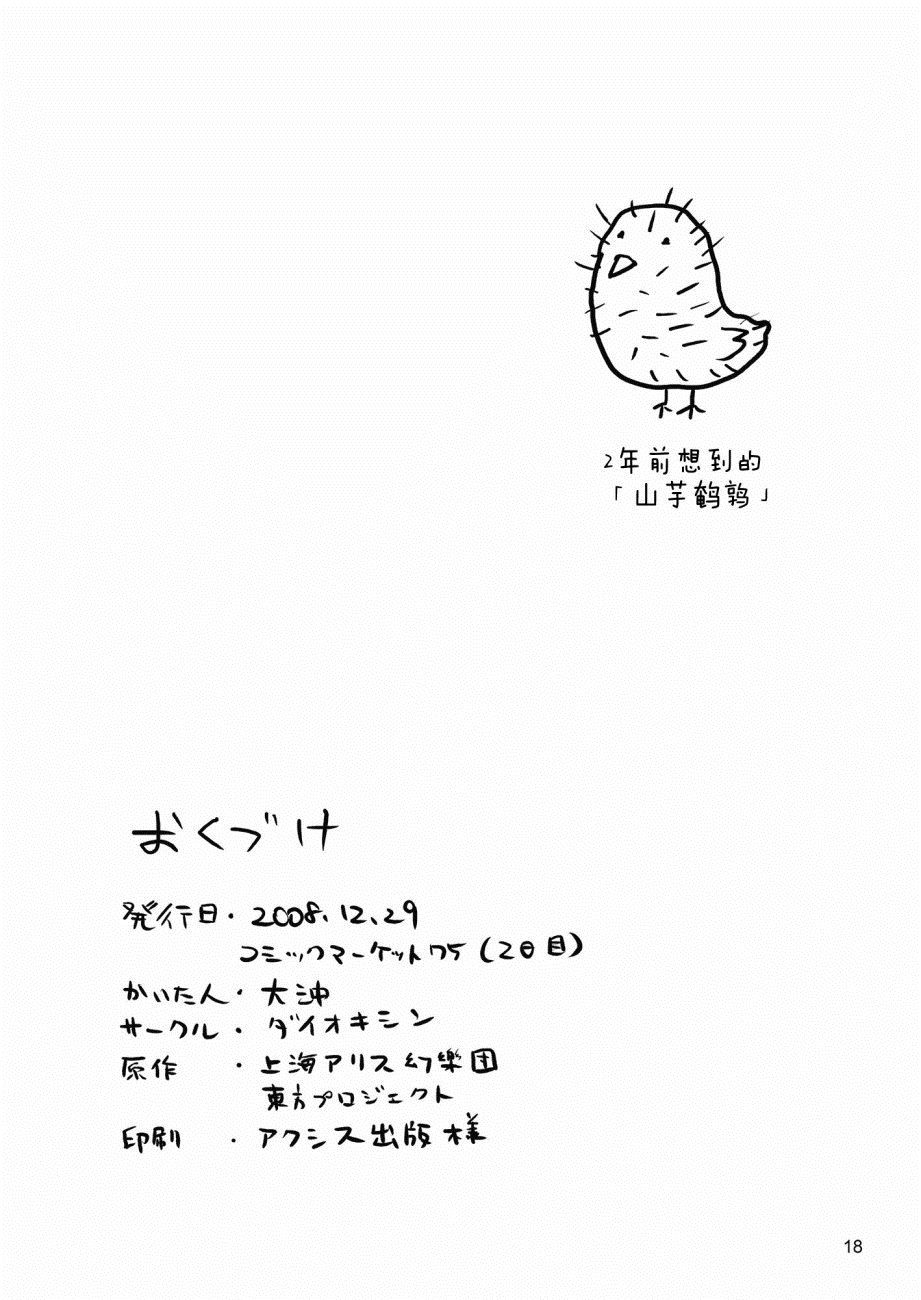 2年前想到的
「山芋鹌鹑」
おくづけ
発行日・2008.12.29
コミックマーケット75（2日目）
かいた人・大沖
サークル・ダイオキシン
原作・上海アリス幻樂団
東方プロジェクト
印刷・アクシス出版様
18